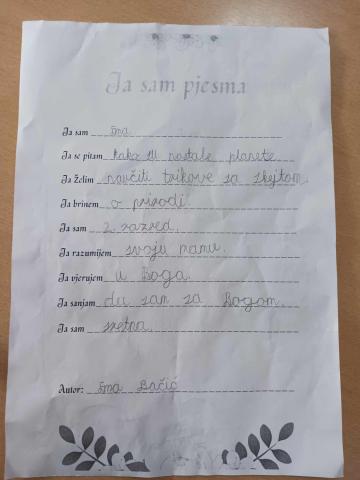 Ja sam pjesma
Ja sam Ema
Ja se pitam kako su nastale planete
Ja želim naučiti trikove sa skejtom.
Ja brinem o prirodi.
Ja sam 2. razred.
Ja razumijem svoju mamu.
Ja vjerujem u Boga.
Ja sanjam da sam sa Bogom.
Ja sam sretna.
Autor: Ema Bačić